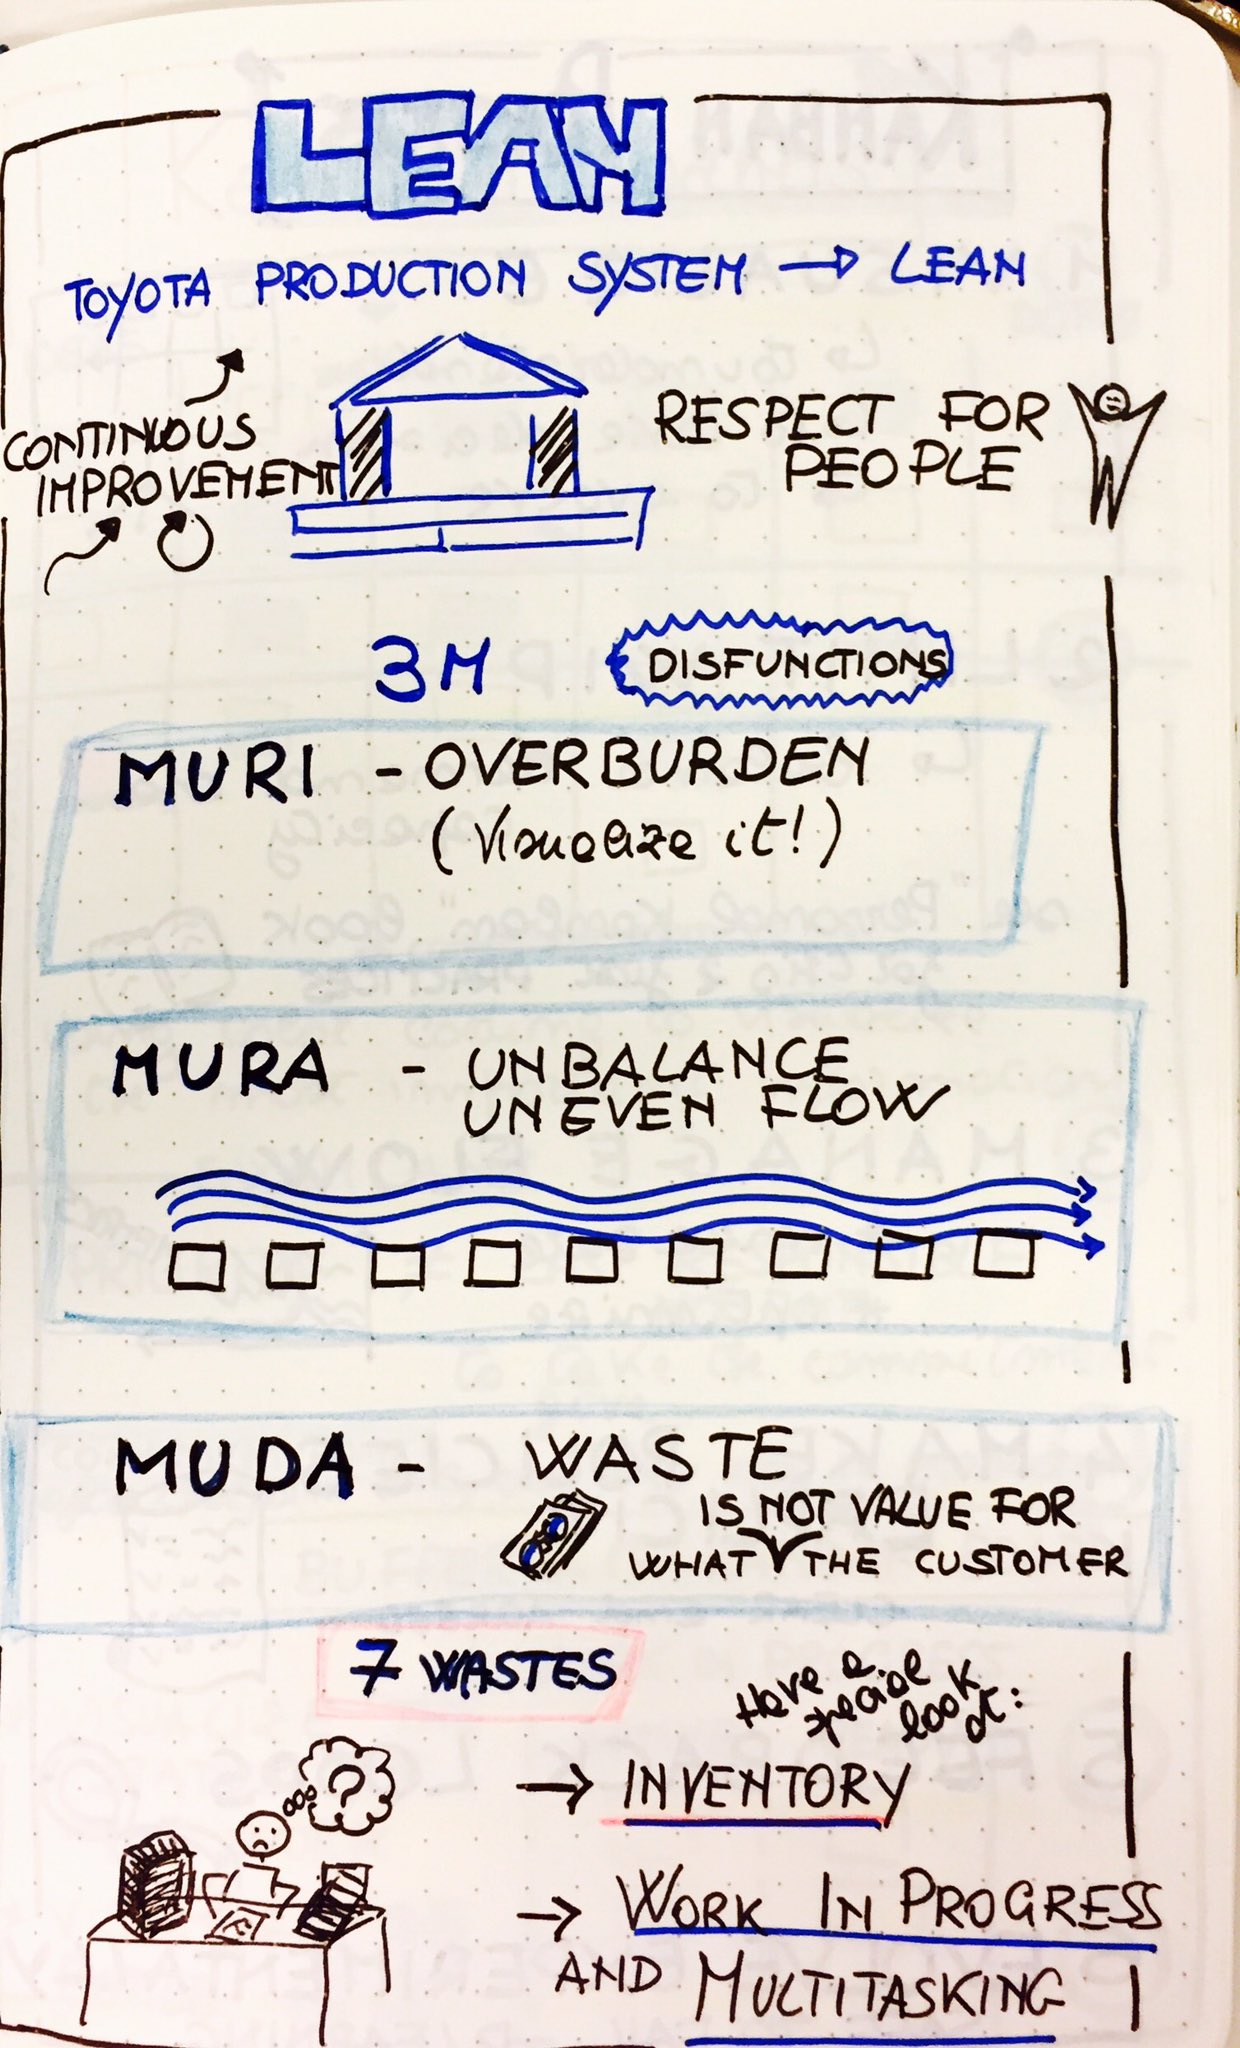 LEAN
TOYOTA PRODUCTION SYSTEM → LEAN
CONTINUOUS
IMPROVEMENT
RESPECT FOR
PEOPLE
3M
DISFUNCTIONS
MURI - OVERBURDEN
(Visualize it!)
MURA - UNBALANCE
UNEVEN FLOW
MUDA - WASTE
IS NOT VALUE FOR
WHAT THE CUSTOMER
7 WASTES
Have a
special
look
at:
?
→ INVENTORY
→ WORK IN PROGRESS
AND MULTITASKING